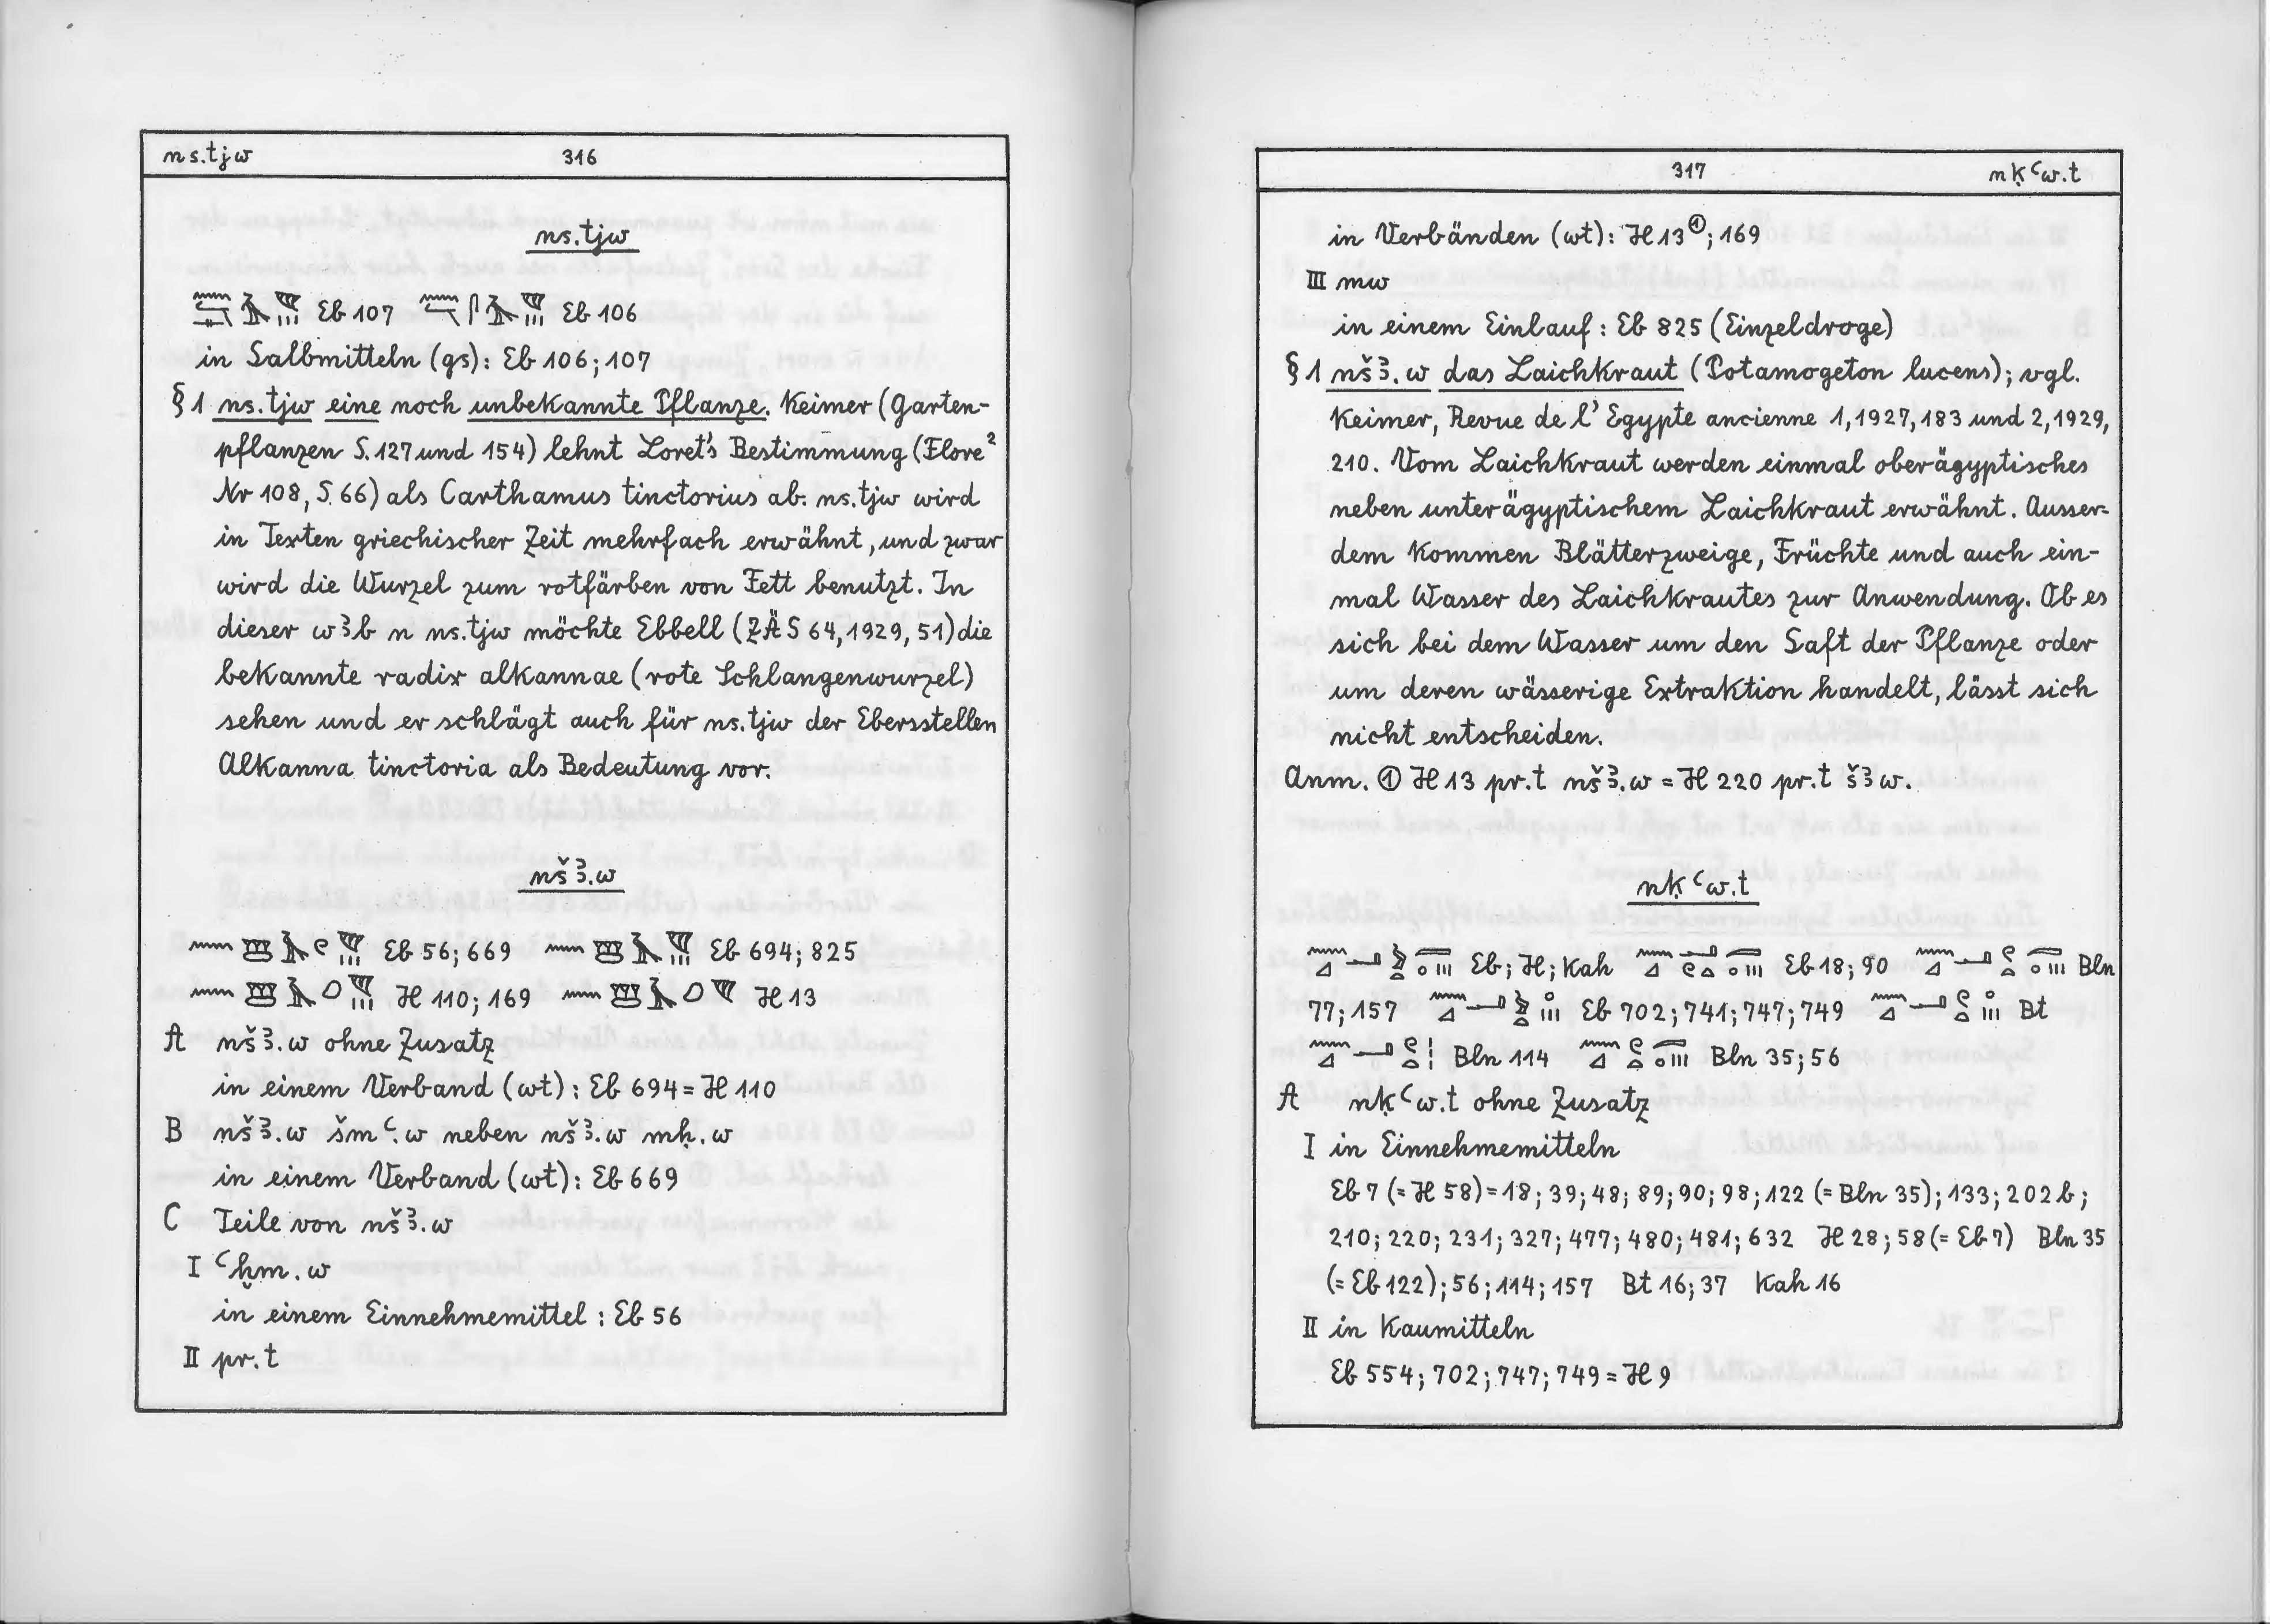 ns.tjw 316
ns.tjw
Eb 107 Eb 106
in Salbmitteln (gs): Eb 106; 107
§ 1 ns.tjw eine noch unbekannte Pflanze. Keimer (Garten-
pflanzen S. 127 und 154) lehnt Loret's Bestimmung (Flore²
Nr 108, S. 66) als Carthamus tinctorius ab. ns.tjw wird
in Texten griechischer Zeit mehrfach erwähnt, und zwar
wird die Wurzel zum rotfärben von Fett benutzt. In
dieser wꜣb n ns.tjw möchte Ebbell (ZÄS 64, 1929, 51) die
bekannte radix alkannae (rote Schlangenwurzel)
sehen und er schlägt auch für ns.tjw der Ebersstellen
Alkanna tinctoria als Bedeutung vor.
nšꜣ.w
Eb 56; 669 Eb 694; 825
H 110; 169 H 13
A nšꜣ.w ohne Zusatz
in einem Verband (wt): Eb 694 = H 110
B nšꜣ.w šmꜥ.w neben nšꜣ.w mḥ.w
in einem Verband (wt): Eb 669
C Teile von nšꜣ.w
I ꜥḫm.w
in einem Einnehmemittel: Eb 56
II pr.t
317 nḳꜥw.t
in Verbänden (wt): H 13①; 169
III mw
in einem Einlauf: Eb 825 (Einzeldroge)
§ 1 nšꜣ.w das Laichkraut (Potamogeton lucens); vgl.
Keimer, Revue de l'Egypte ancienne 1, 1927, 183 und 2, 1929,
210. Vom Laichkraut werden einmal oberägyptisches
neben unterägyptischem Laichkraut erwähnt. Ausser-
dem kommen Blätterzweige, Früchte und auch ein-
mal Wasser des Laichkrautes zur Anwendung. Ob es
sich bei dem Wasser um den Saft der Pflanze oder
um deren wässerige Extraktion handelt, lässt sich
nicht entscheiden.
Anm. ① H 13 pr.t nšꜣ.w = H 220 pr.t šꜣw.
nḳꜥw.t
Eb; H; Kah Eb 18; 90 Bln
77; 157 Eb 702; 741; 747; 749 Bt
Bln 114 Bln 35; 56
A nḳꜥw.t ohne Zusatz
I in Einnehmemitteln
Eb 7 (= H 58) = 18; 39; 48; 89; 90; 98; 122 (= Bln 35); 133; 202b;
210; 220; 231; 327; 477; 480; 481; 632 H 28; 58 (= Eb 7) Bln 35
(= Eb 122); 56; 114; 157 Bt 16; 37 Kah 16
II in Kaumitteln
Eb 554; 702; 747; 749 = H 9